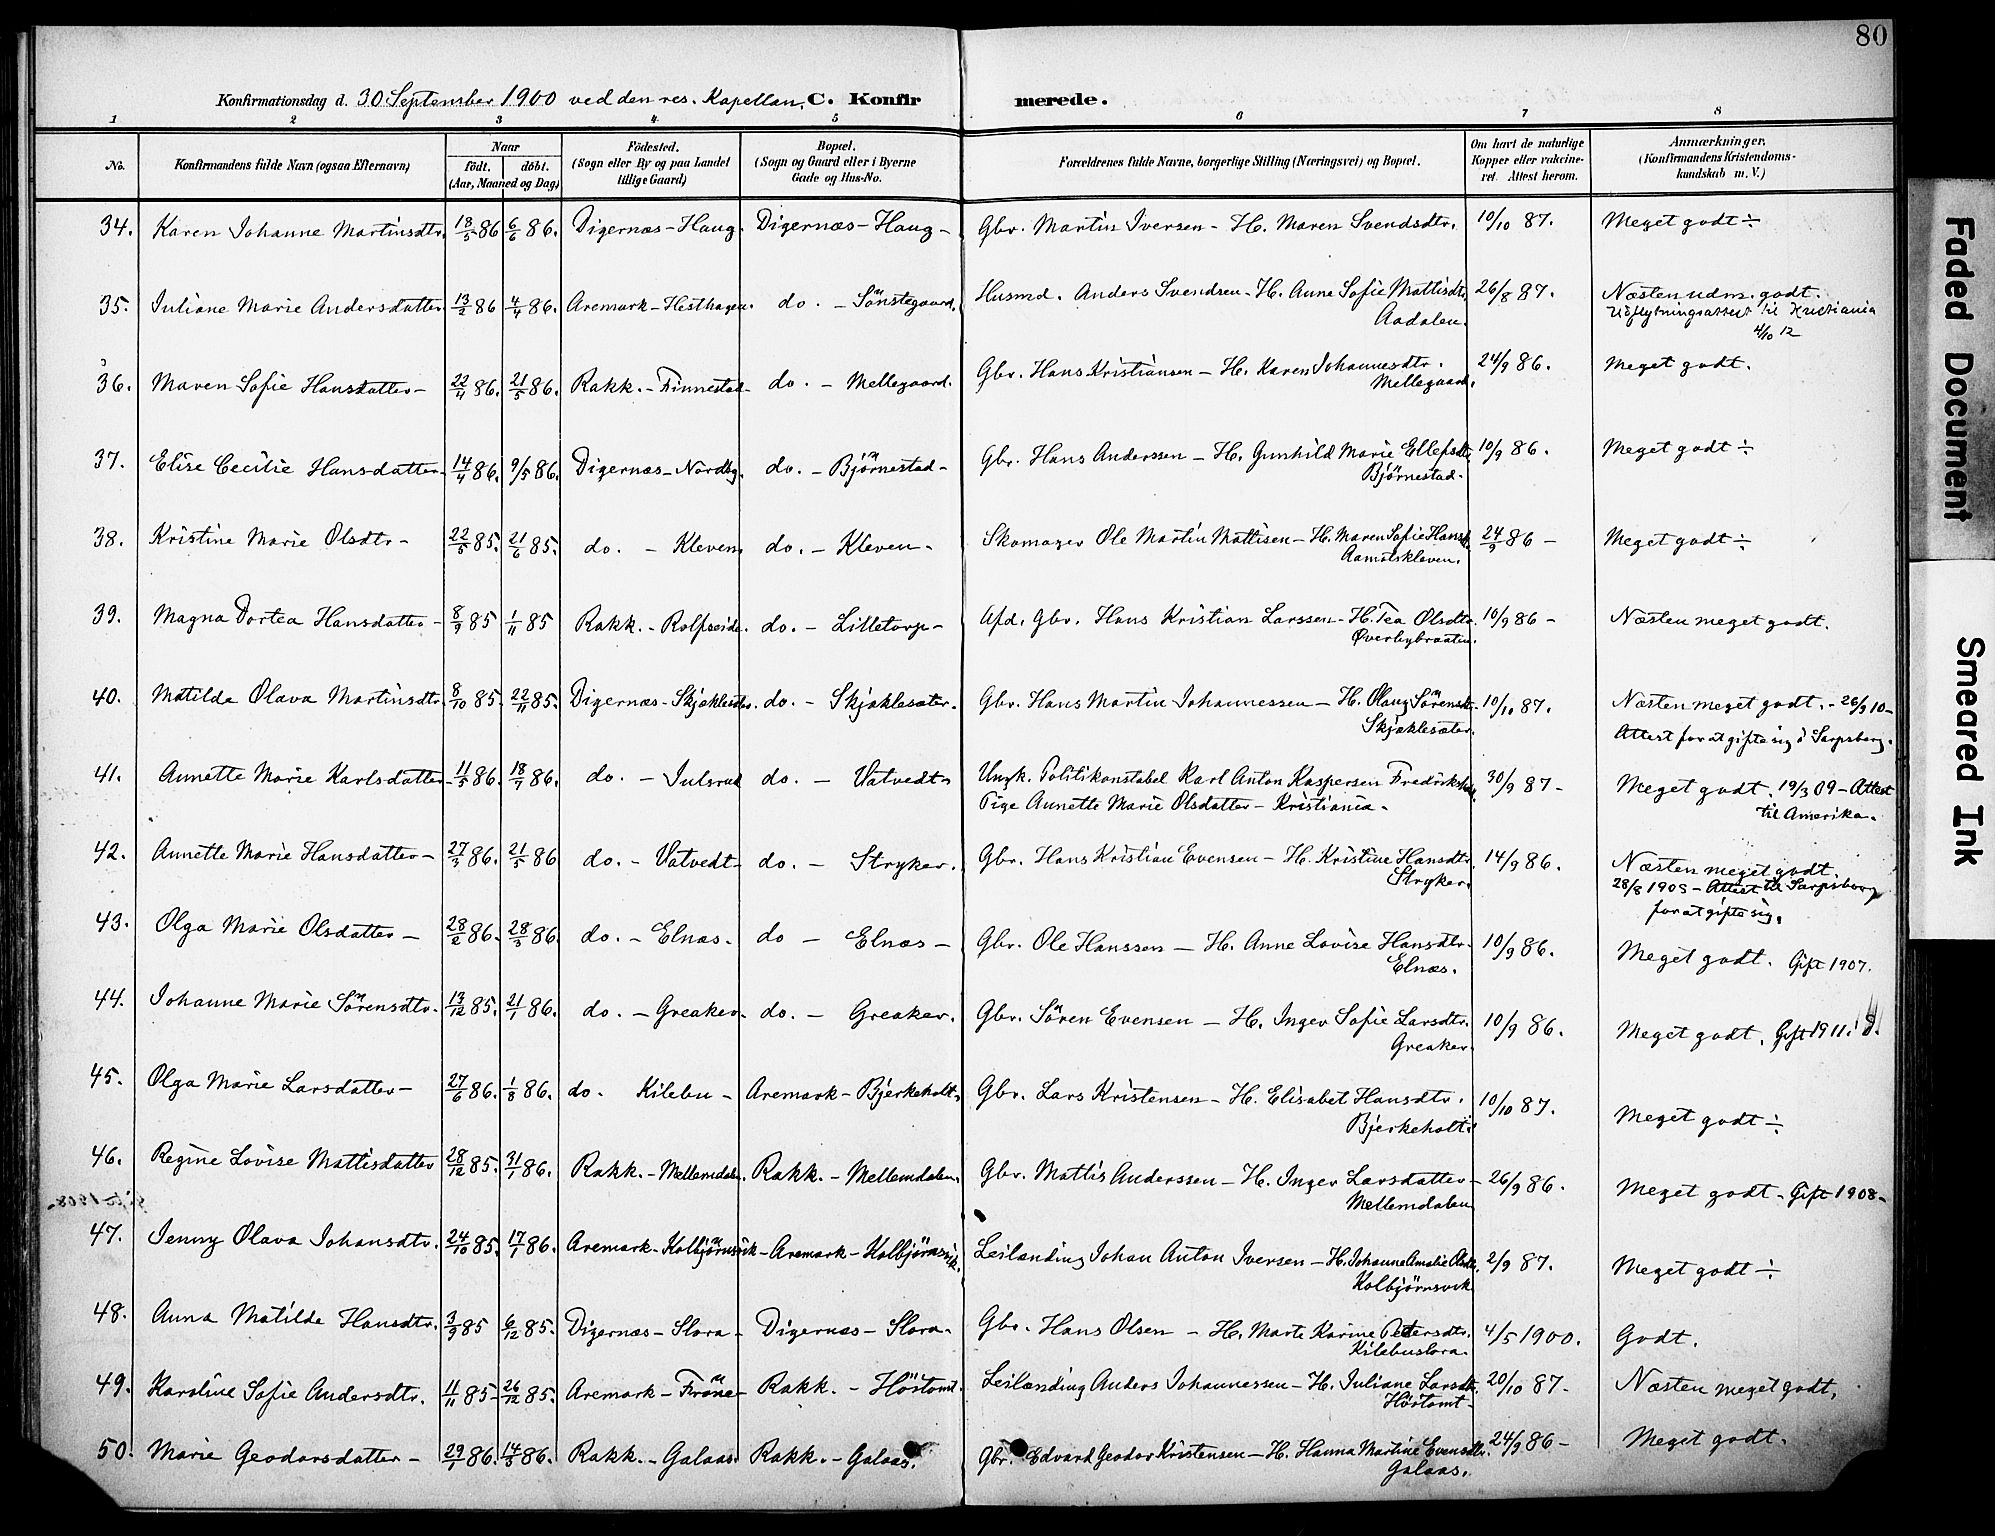 80
Konfirmationsdag d. 30 September 1900 ved den res. Kapellan. C. Konfirmerede.
1 2 3 4 5 6 7 8
No. Konfirmandens fulde Navn (ogsaa Efternavn) Naar født. døbt. (Aar, Maaned og Dag) Fødested. (Sogn eller By og paa Landet tillige Gaard) Bopæl. (Sogn og Gaard eller i Byerne Gade og Hus-No. Forældrenes fulde Navne, borgerlige Stilling (Næringsvei) og Bopæl. Om havt de naturlige Kopper eller vaccineret. Attest herom. Anmærkninger. (Konfirmandens Kristendomskundskab m. V.)
34. Karen Johanne Martinsdtr. 18/5 86 6/6 86. Digernæs - Haug. Digernæs - Haug - Gbr. Martin Iversen - H. Maren Svendsdtr. 10/10 87. Meget godt ÷
35. Juliane Marie Andersdatter 13/2 86 4/4 86. Aremark - Hesthagen. do. - Sönstegaard. Husmd. Anders Svendsen - H. Anne Sofie Mattisdtr. 26/8 87. Næsten udm. godt.
Aadalen. Udflytningsattest til Kristiania
4/10 12
36. Maren Sofie Hansdatter - 22/4 86. 21/5 86. Rakk. - Finnestad do. - Mellegaard. Gbr. Hans Kristiansen - H. Karen Johannesdtr. 24/9 86. Meget godt.
Mellegaard.
37. Elise Cecilie Hansdatter 14/4 86. 9/5 86. Digernæs - Nordbg. do. - Björnestad - Gbr. Hans Anderssen - H. Gunhild Marie Ellefsdtr. 10/9 86. Meget godt ÷
Björnestad -
38. Kristine Marie Olsdtr - 22/5 85. 21/6 85. do. - Kleven. do. - Kleven - Skomager Ole Martin Mattisen - H. Maren Sofie Hansd. 24/9 86 - Meget godt ÷
Aamotskleven.
39. Magna Dortea Hansdatter - 8/9 85 1/11 85 Rakk. - Rolfseide. do. - Lilletorp - Afd. Gbr. Hans Kristian Larssen - H. Tea Olsdtr. 10/9 86 - Næsten meget godt.
Øverbybraaten.
40. Matilde Olava Martinsdtr. 8/10 85. 22/11 85. Digernæs - Skjæklesæter. do. - Skjæklesæter. Gbr. Hans Martin Johannessen - H. Olaug Sörensdtr. 10/10 87. Næsten meget godt. - 26/9 10 -
Skjæklesæter. Attest for at gifte sig i Sarpsborg.
41. Annette Marie Karlsdatter - 11/5 86. 18/7 86. do. - Julsrud do. - Vatvedt - Ungk. Politikonstabel Karl Anton Kaspersen Fredrikshald. 30/9 87 - Meget godt. 19/3 09 - Attest
Pige Annette Marie Olsdatter - Kristiania - til Amerika.
42. Annette Marie Hansdatter - 27/3 86. 21/5 86 do. - Vatvedt - do. - Stryker. Gbr. Hans Kristian Evensen - H. Kristine Hansdtr. 14/9 86. Næsten meget godt.
Stryker. 28/8 1908 - Attest til Sarpsborg
for at gifte sig.
43. Olga Marie Olsdatter - 28/2 86. 28/3 86. do. - Elnæs - do - Elnæs - Gbr. Ole Hanssen - H. Anne Lovise Hansdtr. 10/9 86. Meget godt. Gift 1907.
Elnæs.
44. Johanne Marie Sörensdtr. 13/12 85. 21/1 86. do. - Greaker - do. - Greaker. Gbr. Sören Evensen - H. Inger Sofie Larsdtr. 10/9 86. Meget godt. Gift 1911.
Greaker.
45. Olga Marie Larsdatter - 27/6 86. 1/8 86. do. Kilebu - Aremark - Bjerkeholt. Gbr. Lars Kristensen - H. Elisabet Hansdtr. 10/10 87. Meget godt ÷
Bjerkeholt.
46. Regine Lovise Mattisdatter 28/12 85. 31/1 86. Rakk. - Mellemdalen. Rakk. - Mellemdalen. Gbr. Mattis Anderssen - H. Inger Larsdatter - 26/9 86. Meget godt - Gift 1908 -
Mellemdalen
47. Jenny Olava Johansdtr. 24/10 85. 17/1 86. Aremark - Kolbjörnsvik - Aremark - Kolbjörnsvik. Leilænding Johan Anton Iversen - H. Johanne Amalie Olsdtr. 2/9 87. Meget godt ÷
Kolbjörnsvik
48. Anna Matilde Hansdtr. 3/9 85 6/12 85. Digernæs - Slora - Digernæs - Slora - Gbr. Hans Olsen - H. Marte Karine Petersdtr. 4/5 1900. Godt.
Kilebuslora -
49. Karoline Sofie Andersdtr. 11/11 85 - 26/12 85. Aremark - Fröne - Rakk. - Höstomt. Leilænding Anders Johannessen - H. Juliane Larsdtr. 20/10 87 - Næsten meget godt.
Höstomt -
50. Marie Geodorsdatter - 29/1 86. 14/3 86. Rakk. - Galaas. Rakk. - Galaas. Gbr. Edvard Geodor Kristensen - H. Hanna Martine Evensdtr. 24/9 86 - Meget godt.
Galaas.
Faded Document
Smeared Ink